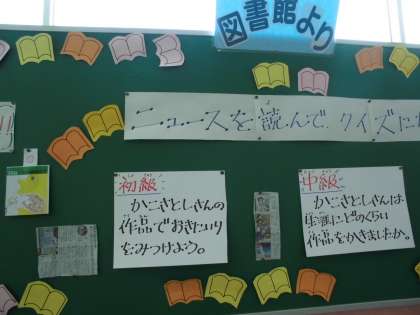 図書館より
ニュースを読んで、クイズに
初級
かこさとしさんの
作品でおきにいり
をみつけよう。
中級
かこさとしさんは
生涯にどのくらい
作品をかきましたか。